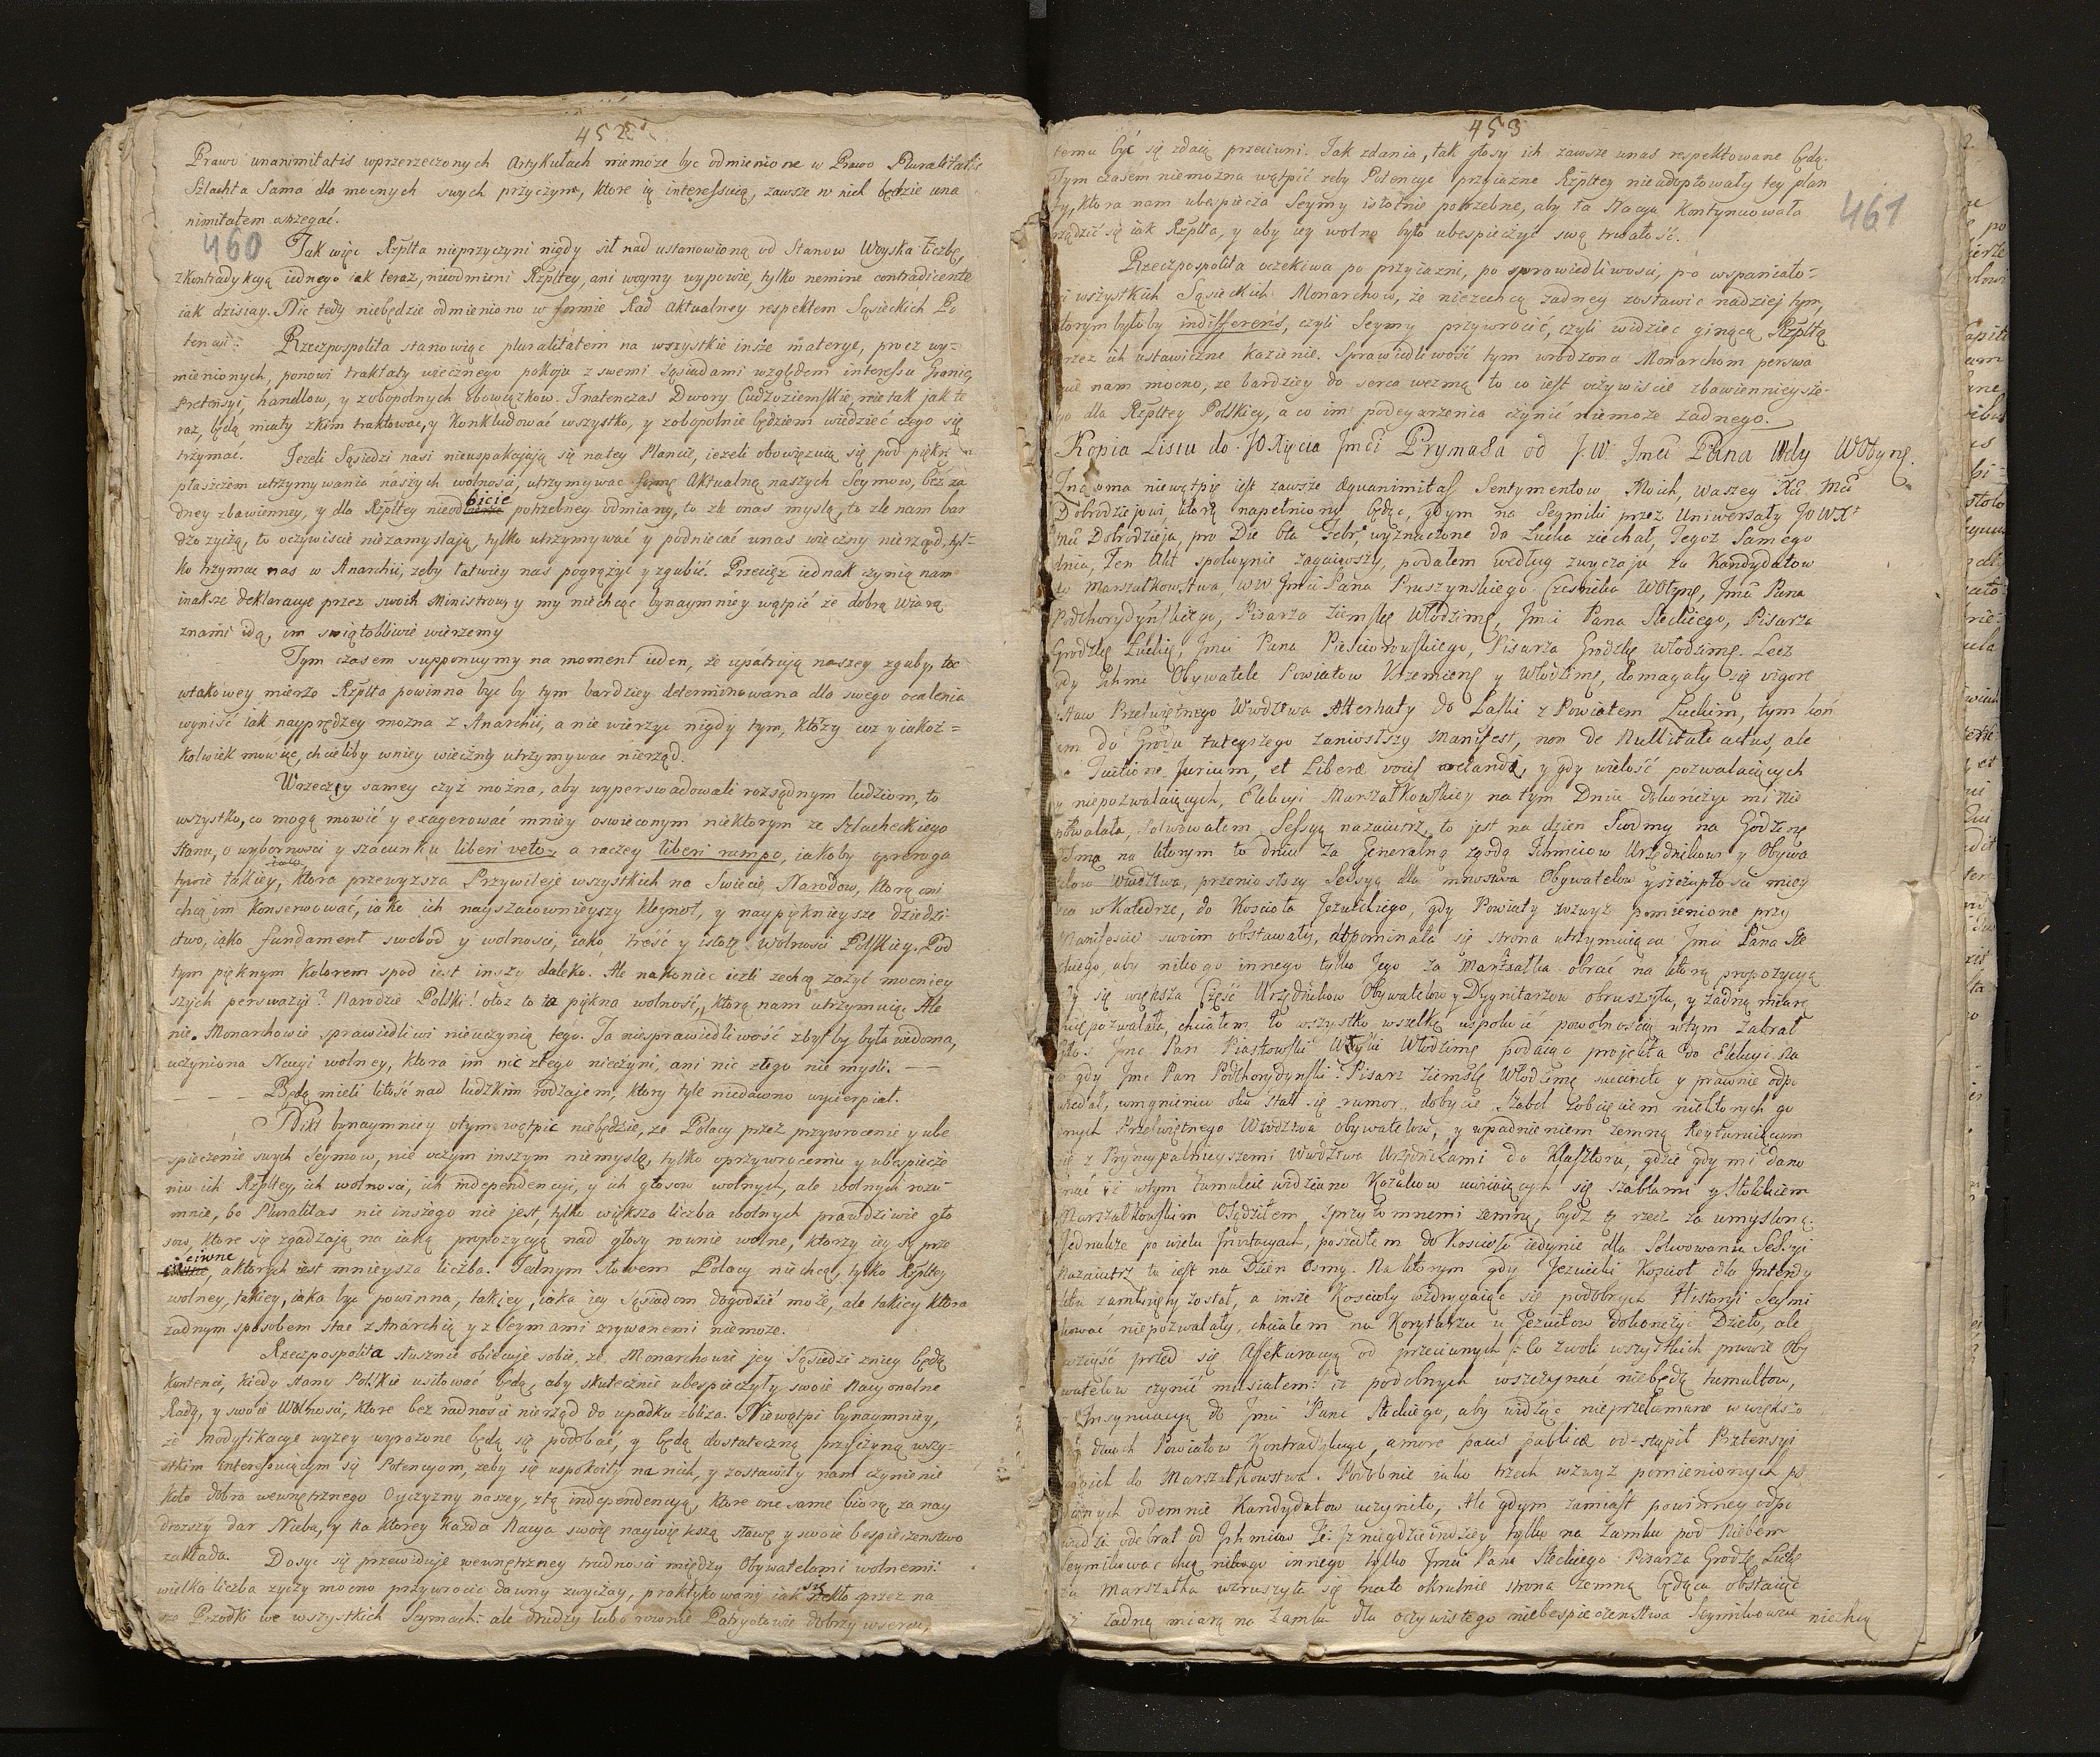 452
Prawo unanimitatis wprzerzeczonych Artykułach niemoże byc odmienione w Prawo Pluralitatis
Szlachta Sama dla mocnych swych przyczyn, ktore ią interessuią, zawsze w nich będzie una
nimitatem ostrzegać.
460
Tak więc Rzplta nieprzyczyni nigdy sił nad ustanowioną od Stanow Woyska liczbę,
zkontradykcyą iednego iak teraz, nieodmieni Rzpltey, ani woyny wypowie, tylko nemine contradicente
iak dzisiay. Nic tedy niebędzie odmieniono w formie Rad Aktualney respektem Sąsieckich Po
tencyi: Rzeczpospolita stanowiąc pluralitatem na wszystkie insze materye, procz wy-
mienionych, ponowi traktaty wiecznego pokoju z swemi Sąsiadami względem interessu Granic,
Pretensyi, handlow, y zobopolnych obowiązkow. Inatenczas Dwory Cudzoziemskie, nie tak jak te
raz, będą miały zkim traktować, y konkludować wszystko, y zobopolnie będziem wiedzieć czego się
trzymać. Jezeli Sąsiedzi nasi nieuspakajają się natey Plancie, iezeli obowięzuią się pod pięknym
płaszczem utrzymywania naszych wolnosci, utrzymywac formę Aktualną naszych Seymow, bez za
dney zbawienney, y dla Rzpltey nieodbicie potrzebney odmiany, to zle onas myslą, to zle nam bar
dzo zyczą, to oczywiscie niezamyslają tylko utrzymywać y podniecać unas wieczny nierząd, tyl-
ko trzymac nas w Anarchii, zeby łatwiey nas pogrązyć y zgubić. Przeciez iednak czynią nam
inaksze deklaracye przez swoich Ministrow, y my niechcąc bynaymniey wątpić że dobrą wiarą
znami idą, im swiątobliwie wierzemy
Tym czasem supponuymy na moment ieden, że upatrują naszey zguby, toc
wtakowey mierze Rzplta powinna byc by tym bardziey determinowana dla swego ocalenia
wyniść iak nayprędzey mozna z Anarchii, a nie wierzyc nigdy tym, ktorzy coz y iakoz-
kolwiek mowiąc, chcieliby wniey wieczny utrzymywac nierząd.
Wrzeczy samey czyz można, aby wyperswadowali rozsądnym ludziom, to
wszystko, co mogą mowić y exagerować mniey oswieconym niektorym ze Szlacheckiego
Stanu, o wybornosci y szacunku liberi veto, a raczey liberi rumpo, iakoby opreroga
tywie takiey, ktora przewyzsza Przywileje wszystkich na Swiecie Narodow, ktorą oni
chcą im konserwować, iako ich nayszacownieyszy kleynot, y naypięknieysze dziedzi
ctwo, iako fundament swobod y wolnosci, iako tresć y istotę Wolnosci Polskiey. Pod
tym pięknym kolorem spod iest inszy daleko. Ale nakoniec iezli zechcą zażyć mocniey
szych perswazyi? Narodzie Polski! otoz to ta piękna wolność, ktorą nam utrzymuią. Ale
nie. Monarchowie sprawiedliwi nieuczynią tego. Ta niesprawiedliwość zbyt by była widoma,
uczyniona Nacyi wolney, ktora im nic złego nieczyni, ani nic złego nie mysli.
Będą mieli litość nad ludzkim rodzajem, ktory tyle niedawno wycierpiał.
Nikt bynaymniey otym wątpic niebędzie, ze Polacy przez przywrocenie y ube
spieczenie swych Seymow, nie oczym inszym niemyslą, tylko oprzywroceniu y ubespiecze
niu ich Rzpltey, ich wolnosci, ich independencyi, y ich głosow wolnych, ale wolnych rozu
mnie, bo Pluralitas nic inszego nie jest, tylko większa liczba wolnych prawdziwie gło
sow, ktore się zgadzają na iaką propozycyą nad głosy rownie wolne, ktorzy iey są prze
ciwne, aktorych iest mnieysza liczba. Jednym słowem Polacy niechcą, tylko Rzpltey
wolney, takiey, iaka byc powinna, takiey, iaka iey Sąsiadom dogodzić może, ale takiey ktora
zadnym sposobem stac z Anarchią y z Seymami zrywanemi niemoze.
Rzeczpospolita słusznie obiecuje sobie, ze Monarchowie jey Sąsiedzi zniey będą
kontenci, kiedy stany Polskie usiłować będą, aby skutecznie ubespieczyły swoie Nacyonalne
Rady, y swoie Wolnosci, ktore bez radnosci nierząd do upadku zbliza. Niewątpi bynaymniey,
że modyfikacye wyzey wyrazone będą się podobać, y będą dostateczną przyczyną wszy-
stkim interessuiącym się Potencyom, zeby się uspokoiły na nich, y zostawiły nam czynienie
koło dobra wewnętrznego Oyczyzny naszey, ztą independencyą, ktore one same biorą za nay
drozszy dar Nieba, y na ktorey kazda Nacya swoię naywiększą sławę y swoie bespieczenstwo
zakłada. Dosyc się przewiduje wewnętrzney trudnosci między Obywatelami wolnemi:
wielka liczba zyczy mocno przywrocic dawny zwyczay, praktykowany iak się rzekło przez na
sze Przodki we wszystkich Seymach: ale drudzy lubo rownie Patryotowie dobrzy wsercu,
453
temu być się zdaią przeciwni. Tak zdania, tak głosy ich zawsze unas respektowane będą.
Tym czasem niemozna wątpić zeby Potencye przyiazne Rzpltey nieadoptowały tey plan
ty, ktora nam ubespiecza Seymy istotnie potrzebne, aby ta Nacya kontynuowała
rządzić się iak Rzplta, y aby iey wolno było ubespieczyc swą trwałość.
461
Rzeczpospolita oczekiwa po przyiazni, po sprawiedliwosci, po wspaniało-
wszystkich Sąsieckich Monarchow, że niezechcą zadney zostawic nadziej tym,
ktorym byłoby indifferens, czyli Seymy przywrocić, czyli widziec ginącą Rzpltą
przez ich ustawiczne kazienie. Sprawiedliwość tym wrodzona Monarchom perswa
nam mocno, ze bardziey do serca wezmą to co iest oczywiscie zbawiennieysze-
go dla Rzpltey Polskiey, a co im podeyzrzenia czynić niemoże żadnego.
Kopia Listu do JO Xięcia Jmci Prymasa od J.W. Jmci Pana Wdy Wołyng.
Znaioma niewątpię iest zawsze aequanimitas Sentymentow Moich, Waszey Xcey Mci
Dobrodziejowi ktorą napełniony będąc, gdym na Seymiki przez Uniwersały JOWX
Mci Dobrodzieja, pro Die 6ta Febr: wyznaczone do Łucka ziechał, Tegoz Samego
dnia, Ten Akt spokoynie zagaiwszy, podałem według zwyczaju za Kandydatow
do Marszałkowstwa, WW Jmci Pana Pruszynskiego Czesnika Wołyng, Jmci Pana
Podhorydyńskiego, Pisarza Ziemskg Włodzimg, Jmci Pana Steckiego, Pisarza
Grodzkg Łuckig, Jmci Pana Piesciorowskiego, Pisarza Grodzkg Włodzimg. Lecz
gdy Ichmc Obywatele Powiatow Krzemieng y Włodzimg, domagały się vigore
Praw Przeswiętnego Wwdztwa Alternaty do Laski z Powiatem Łuckim, tym koń
cem do Grodu tuteyszego zaniosłszy Manifest, non de Nullitate actus, ale
de Tuitione Jurium, et Liberae vocis, y gdy wielość pozwalaiących
y niepozwalaiących, Elekcyi Marszałkowskiey na tym Dniu dokonczyc mi nie
powalała, Solwowałem Sessyą nazaiutrz, to jest na dzien Siodmy na Godzinę
na ktorym to dniu za Generalną zgodą Ichmciow Urzędnikow y Obywa
telow Wwdztwa, przeniosłszy Sessyą dla mnostwa Obywatelow y szczupłosci miey
sca w Katedrze, do Koscioła Jezuickiego, gdy Powiaty zwzwyz pomienione przy
Manifescie swoim obstawały, dopominała się strona utrzymuiąca Jmci Pana Ste
ckiego, aby nikogo innego tylko Jego za Marszałka obrać na ktorą propozycyą
gdy się większa część Urzędnikow Obywatelow y Dygnitarzow obruszyła, y zadną miarą
niepozwalała, chciałem to wszystko wszelką uspokoić powolnoscią wtym zabrał
głos Jmc Pan Piastowski Włodzimg podaiąc projekta do Elekcyi. Na
co gdy Jmc Pan Podhorydynski Pisarz Ziemskg Włodzimg succincte y prawnie odpo
wiedał, wmgnieniu oka stał się rumor, dobycie szabel zobcięciem niektorych go
dnych Przeswiętnego Wwdztwa Obywatelow, y wpadnieniem zemną Reytuiącym
się z Pryncypalnieyszemi Wwdztwa Urzędnikami do Klasztoru, gdzie gdy mi dano
znać iż wtym tumulcie widziano Kozakow uwiiaiących się szablami y Stolikiem
Marszałkowskim Osądziłem zprzytomnemi zemną, bydz tę rzecz za umysloną.
Jednakze po wielu Inwitacyach, poszedłem do Koscioła iedynie dla Solwowania Sessyi
Nazaiutrz to iest na Dzien Osmy. Na ktorym gdy Jezuicki Koscioł dla Interdy
ktu zamknięty został, a insze Koscioły wzdrygaiąc się podobnych Historyi Seymi
kować niepozwalały, chciałem na Korytarzu u Jezuitow dokonczyc Dzieło, ale
wziąść przed się Assekuracyą od przeciwnych |: Co zwoli wszystkich prawie Oby
watelow czynić musiałem: iz podobnych wszczynać niebędą tumultow,
y Insynuacyą do Jmci Pana Steckiego, aby widząc nieprzełamane większe
dwuch Powiatow Kontradykcye, amore pacis publicae odstąpił Pretensyi
swoich do Marszałkowstwa. Podobnie iako trzech wzwyz pomienionych po
danych odemnie Kandydatow uczyniło, Ale gdym zamiast powinney odpo
wiedzi odebrał od Ichmciow iż nigdzie indziey tylko na Zamku pod Niebem
Seymikowac chcą nikogo innego tylko Jmci Pana Steckiego Pisarza Grodzg Łuckg
za Marszałka wzruszyła się nato okrutnie strona zemną będąca obstaiąc
iż żadną miarą na Zamku dla oczywistego niebespieczenstwa Seymikowac niechcą